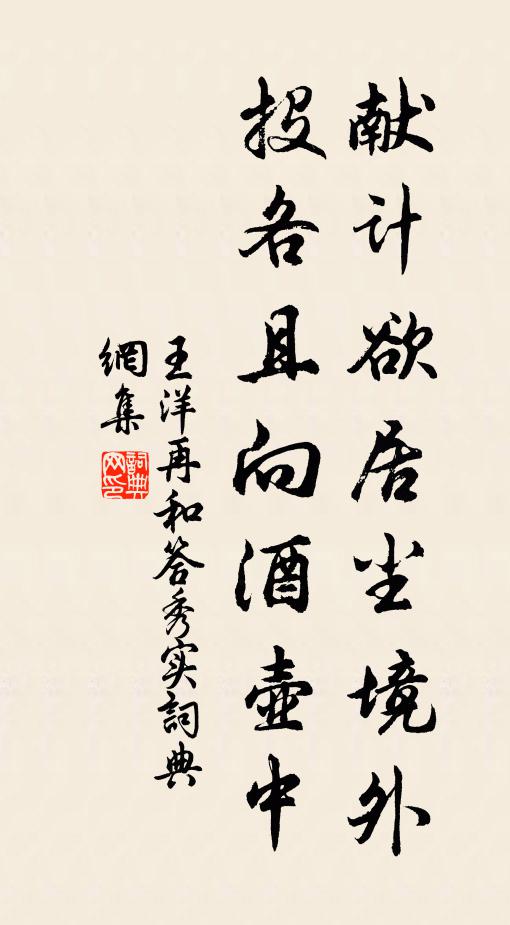 献计欲居尘境外
投名且向酒壶中
王洋再和答秀实詞典
網集
詞典网印